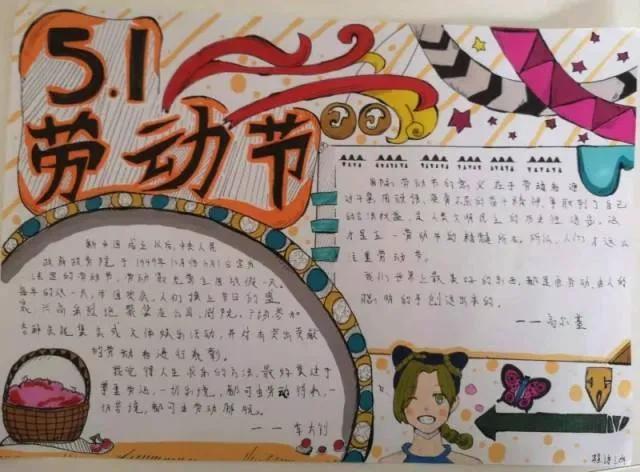 5.1
劳动节
J J
新中国成立以后,中央人民
政府政务院于1949年12月23日宣布
法定的劳动节,劳动最光荣全国放假一天。
每年的这一天,举国欢庆,人们换上节日的盛
装,兴高采烈地聚集在公园、剧院、广场参加
各种庆祝集会或文体娱乐活动,并对有突出贡献
的劳动者进行表彰。
我觉得人生求乐的方法,最好莫过于
尊重劳动,一切乐境,都可由劳动得来,一
切苦境,都可由劳动解脱。
——李大钊
国际劳动节的意义在于劳动者通
过斗争,用顽强、英勇不屈的奋斗精神,争取到了自己
的合法权益,是人类文明民主的历史性进步,这
才是五一劳动节的精髓所在。所以,人们才这么
注重劳动节。
我们世界上最美好的东西,都是由劳动、由人的
聪明的手创造出来的。
——高尔基